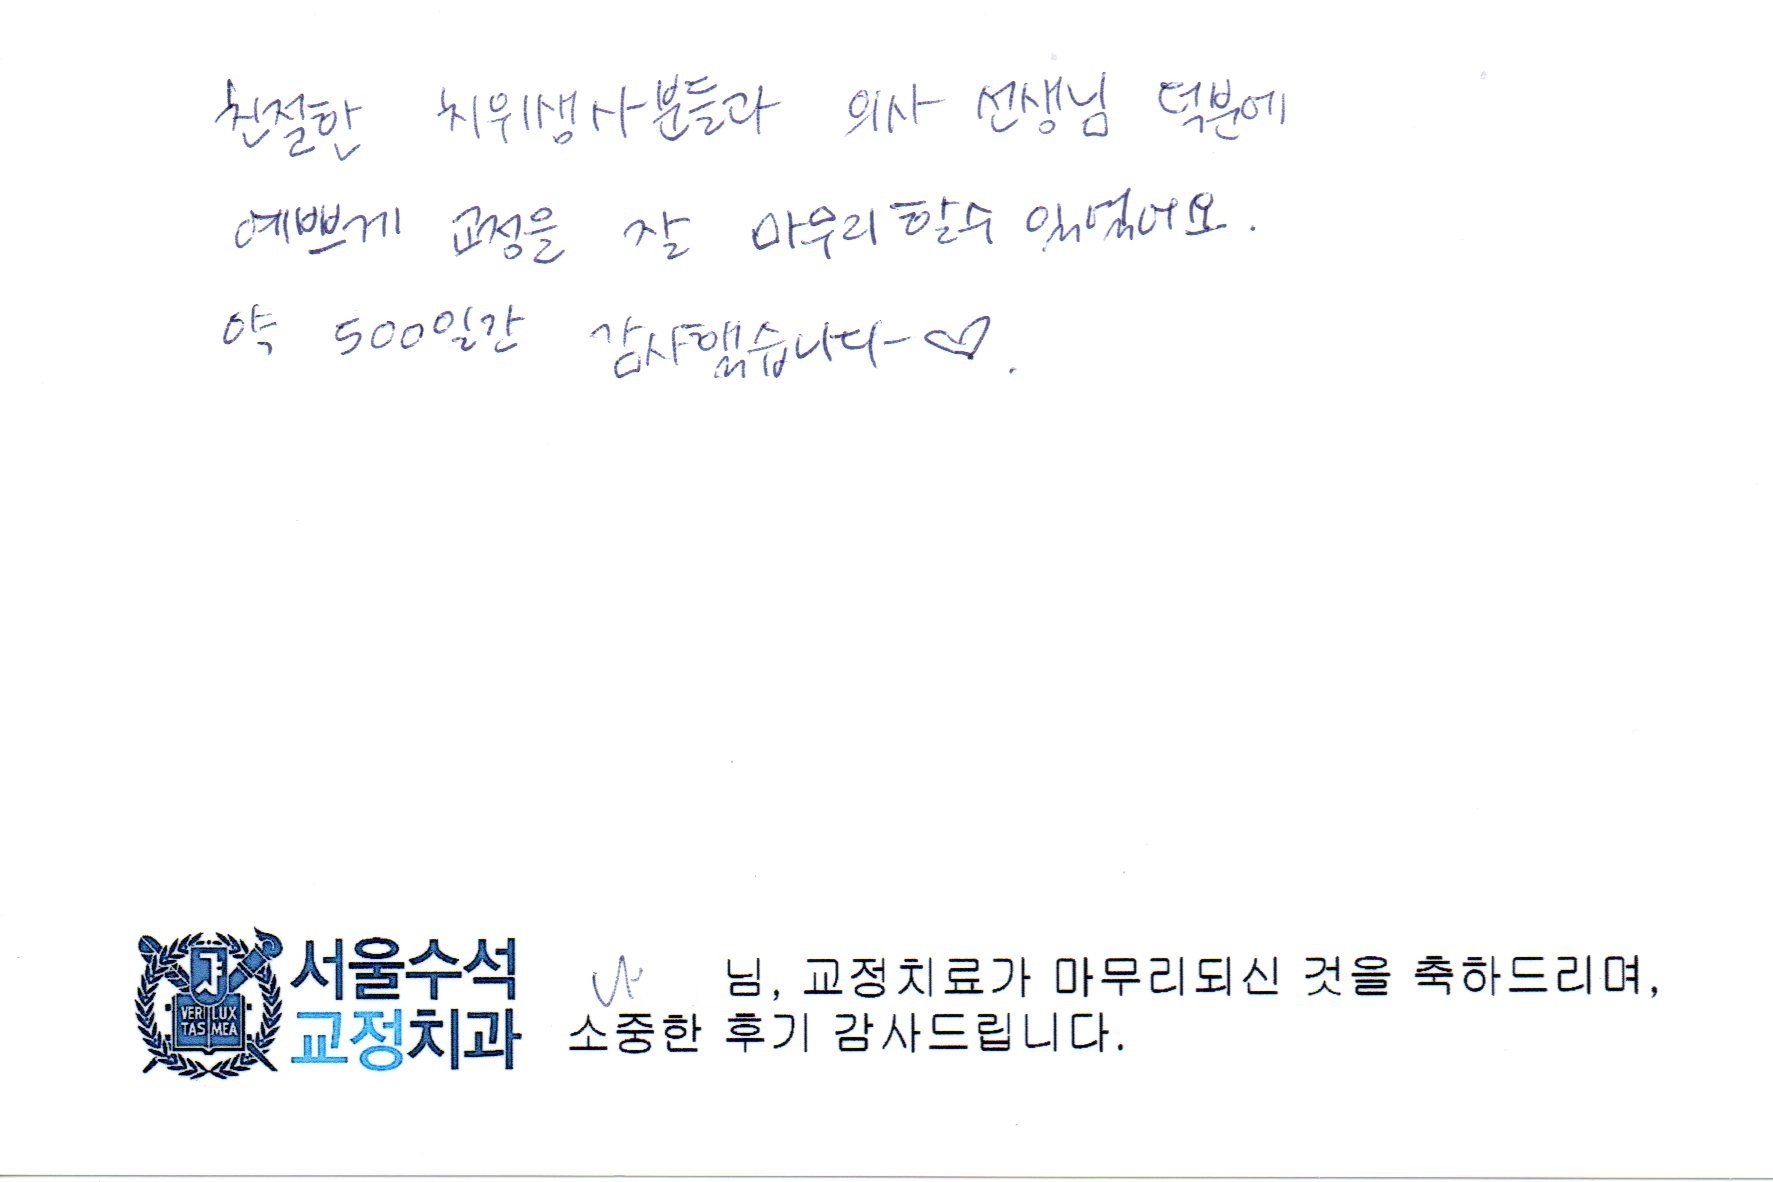 친절한 치위생사분들과 의사 선생님 덕분에
예쁘게 교정을 잘 마무리 할수 있었어요.
약 500일간 감사했습니다~♡.
서울수석
교정치과
VERI LUX
TAS MEA
님, 교정치료가 마무리되신 것을 축하드리며,
소중한 후기 감사드립니다.